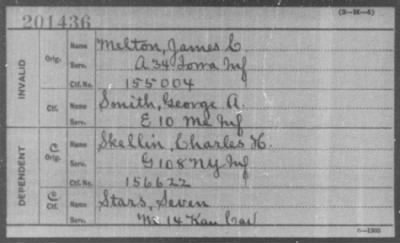 201436
(3-M-6)
INVALID
Orig.
Name Melton, James C
Serv. A 34 Iowa Inf
Ctf. No. 155004
Ctf.
Name Smith, George A.
Serv. E 10 Me Inf
DEPENDENT
C Orig.
Name Skellin, Charles H.
Serv. G 108 NY Inf
Ctf. No. 156622
C Ctf.
Name Stars, Seven
Serv. 14 Kan Cav
6-1303